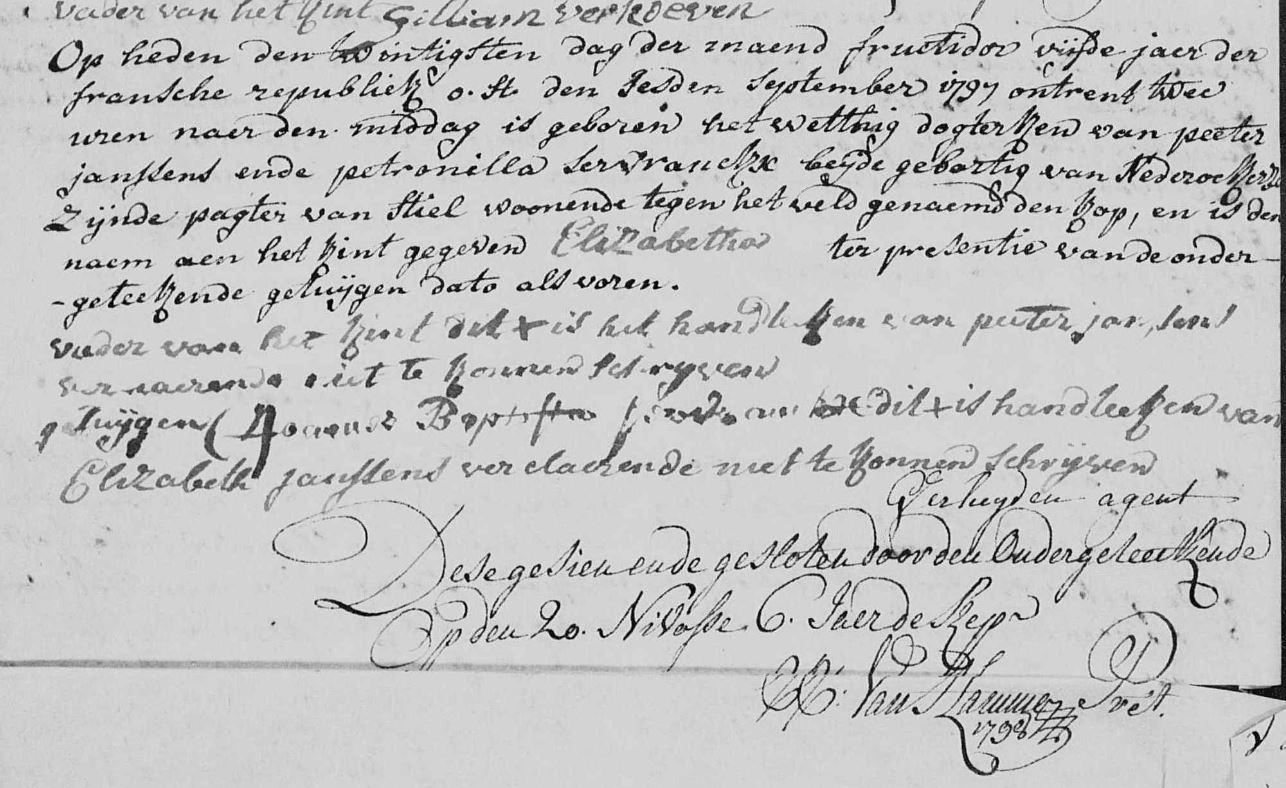 vader van het kint Gilliam verhoeven
Op heden den twintigsten dag der maend fructidor vijfde jaer der
fransche republiek o. st. den sesden september 1797 ontrent twee
uren naer den middag is geboren het wettig dogterken van peeter
janssens ende petronilla servranckx beyde gebortig van Nederockerz
Zijnde pagter van stiel woonende tegen het veld genaemd den kop, en is den
naem aen het kint gegeven Elizabetha ter presentie van de onder-
-geteekende getuygen dato als voren.
vader van het kint dit + is het handteken van peeter janssens
verclaerende niet te konnen schryven
getuygen (Joannes Baptista dit + is handteeken van
Elizabeth janssens verclaerende niet te konnen schryven
Verheyden agent
Dese gesien ende gesloten door den Ondergeteekende
Op den 20. Nivosse 6. Jaer de Rep
Van Hamme Prêt.
1798